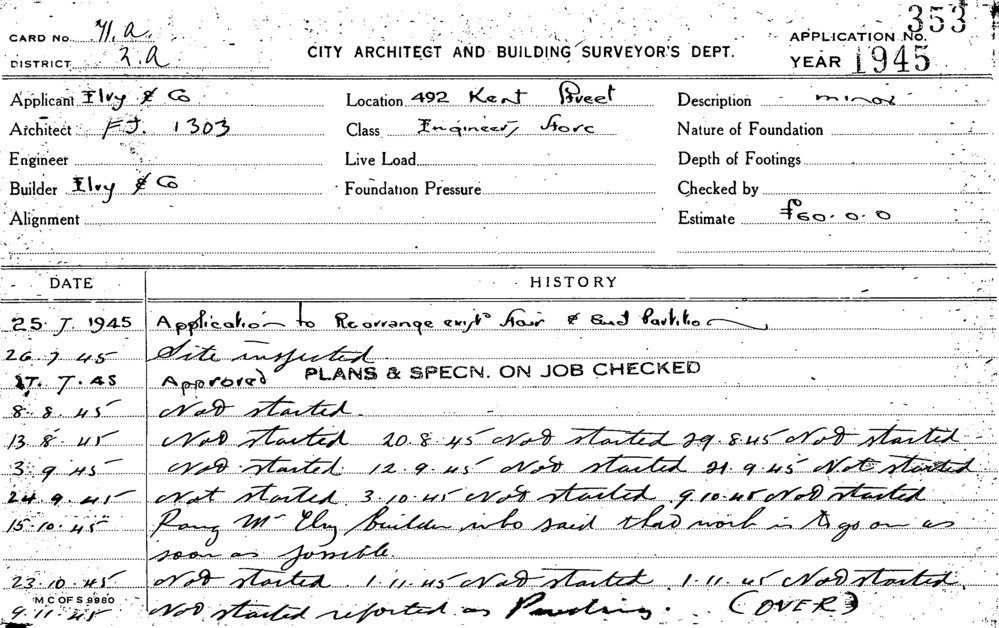 CARD No. H.a.
DISTRICT 2.a
CITY ARCHITECT AND BUILDING SURVEYOR'S DEPT.
APPLICATION No. 353
YEAR 1945
Applicant Elvy & Co
Location 492 Kent Street
Description minor
Architect FJ. 1303
Class Engineers Store
Nature of Foundation
Engineer
Live Load
Depth of Footings
Builder Elvy & Co
Foundation Pressure
Checked by
Alignment
Estimate £60.0.0
DATE HISTORY
25.7.1945 Application to Rearrange exist Stair & Partition
26 7 45 Site inspected.
27.7.45 Approved PLANS & SPECN. ON JOB CHECKED
8.8.45 Not started.
13.8.45 Not started 20.8.45 Not started 29.8.45 Not started
3.9.45 Not started 12.9.45 Not started 21.9.45 Not started
24.9.45 Not started 3.10.45 Not started 9.10.45 Not started
15.10.45 Rang Mr Elvy builder, who said that work is to go on as
soon as possible.
23.10.45 Not started 1.11.45 Not started 1.11.45 Not started
M C OF S 9980
9.11.45 Not started reported as Pending. (OVER)